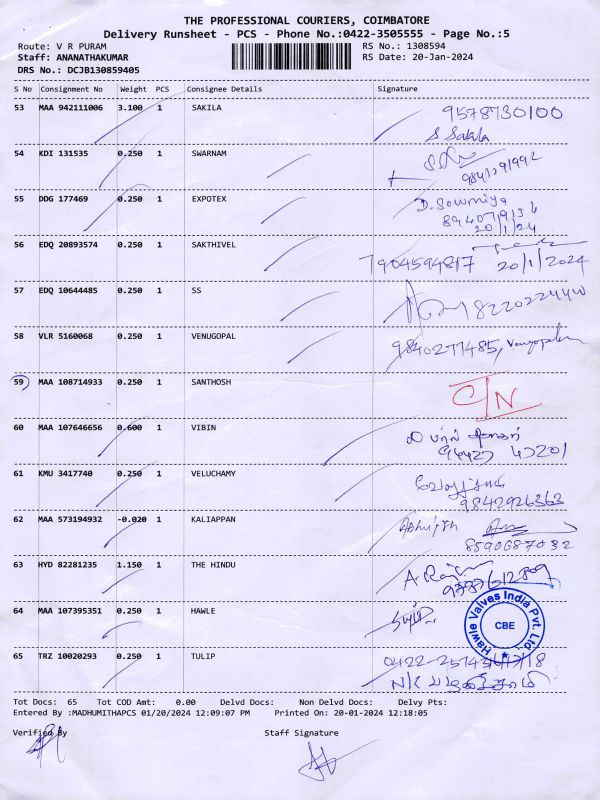 THE PROFESSIONAL COURIERS, COIMBATORE
Delivery Runsheet - PCS - Phone No.:0422-3505555 - Page No.:5
Route: V R PURAM RS No.: 1308594
Staff: ANANATHAKUMAR RS Date: 20-Jan-2024
DRS No.: DCJB130859405
S No Consignment No Weight PCS Consignee Details Signature
53 MAA 942111006 3.100 1 SAKILA 9578730100
S. Sakila
54 KDI 131535 0.250 1 SWARNAM
55 DDG 177469 0.250 1 EXPOTEX D. Sowmiya
20/1/24
56 EDQ 20893574 0.250 1 SAKTHIVEL
7904594817 20/1/2024
57 EDQ 10644485 0.250 1 SS 8220224440
58 VLR 5160068 0.250 1 VENUGOPAL 9840277485, Venugopal
59 MAA 108714933 0.250 1 SANTHOSH C/N
60 MAA 107646656 0.600 1 VIBIN
61 KMU 3417740 0.250 1 VELUCHAMY
9842926363
62 MAA 573194932 -0.020 1 KALIAPPAN Abhijith
8590687032
63 HYD 82281235 1.150 1 THE HINDU
64 MAA 107395351 0.250 1 HAWLE
Hawle Valves India Pvt. Ltd.
CBE
65 TRZ 10020293 0.250 1 TULIP
Tot Docs: 65 Tot COD Amt: 0.00 Delvd Docs: Non Delvd Docs: Delvy Pts:
Entered By :MADHUMITHAPCS 01/20/2024 12:09:07 PM Printed On: 20-01-2024 12:18:05
Verified By Staff Signature